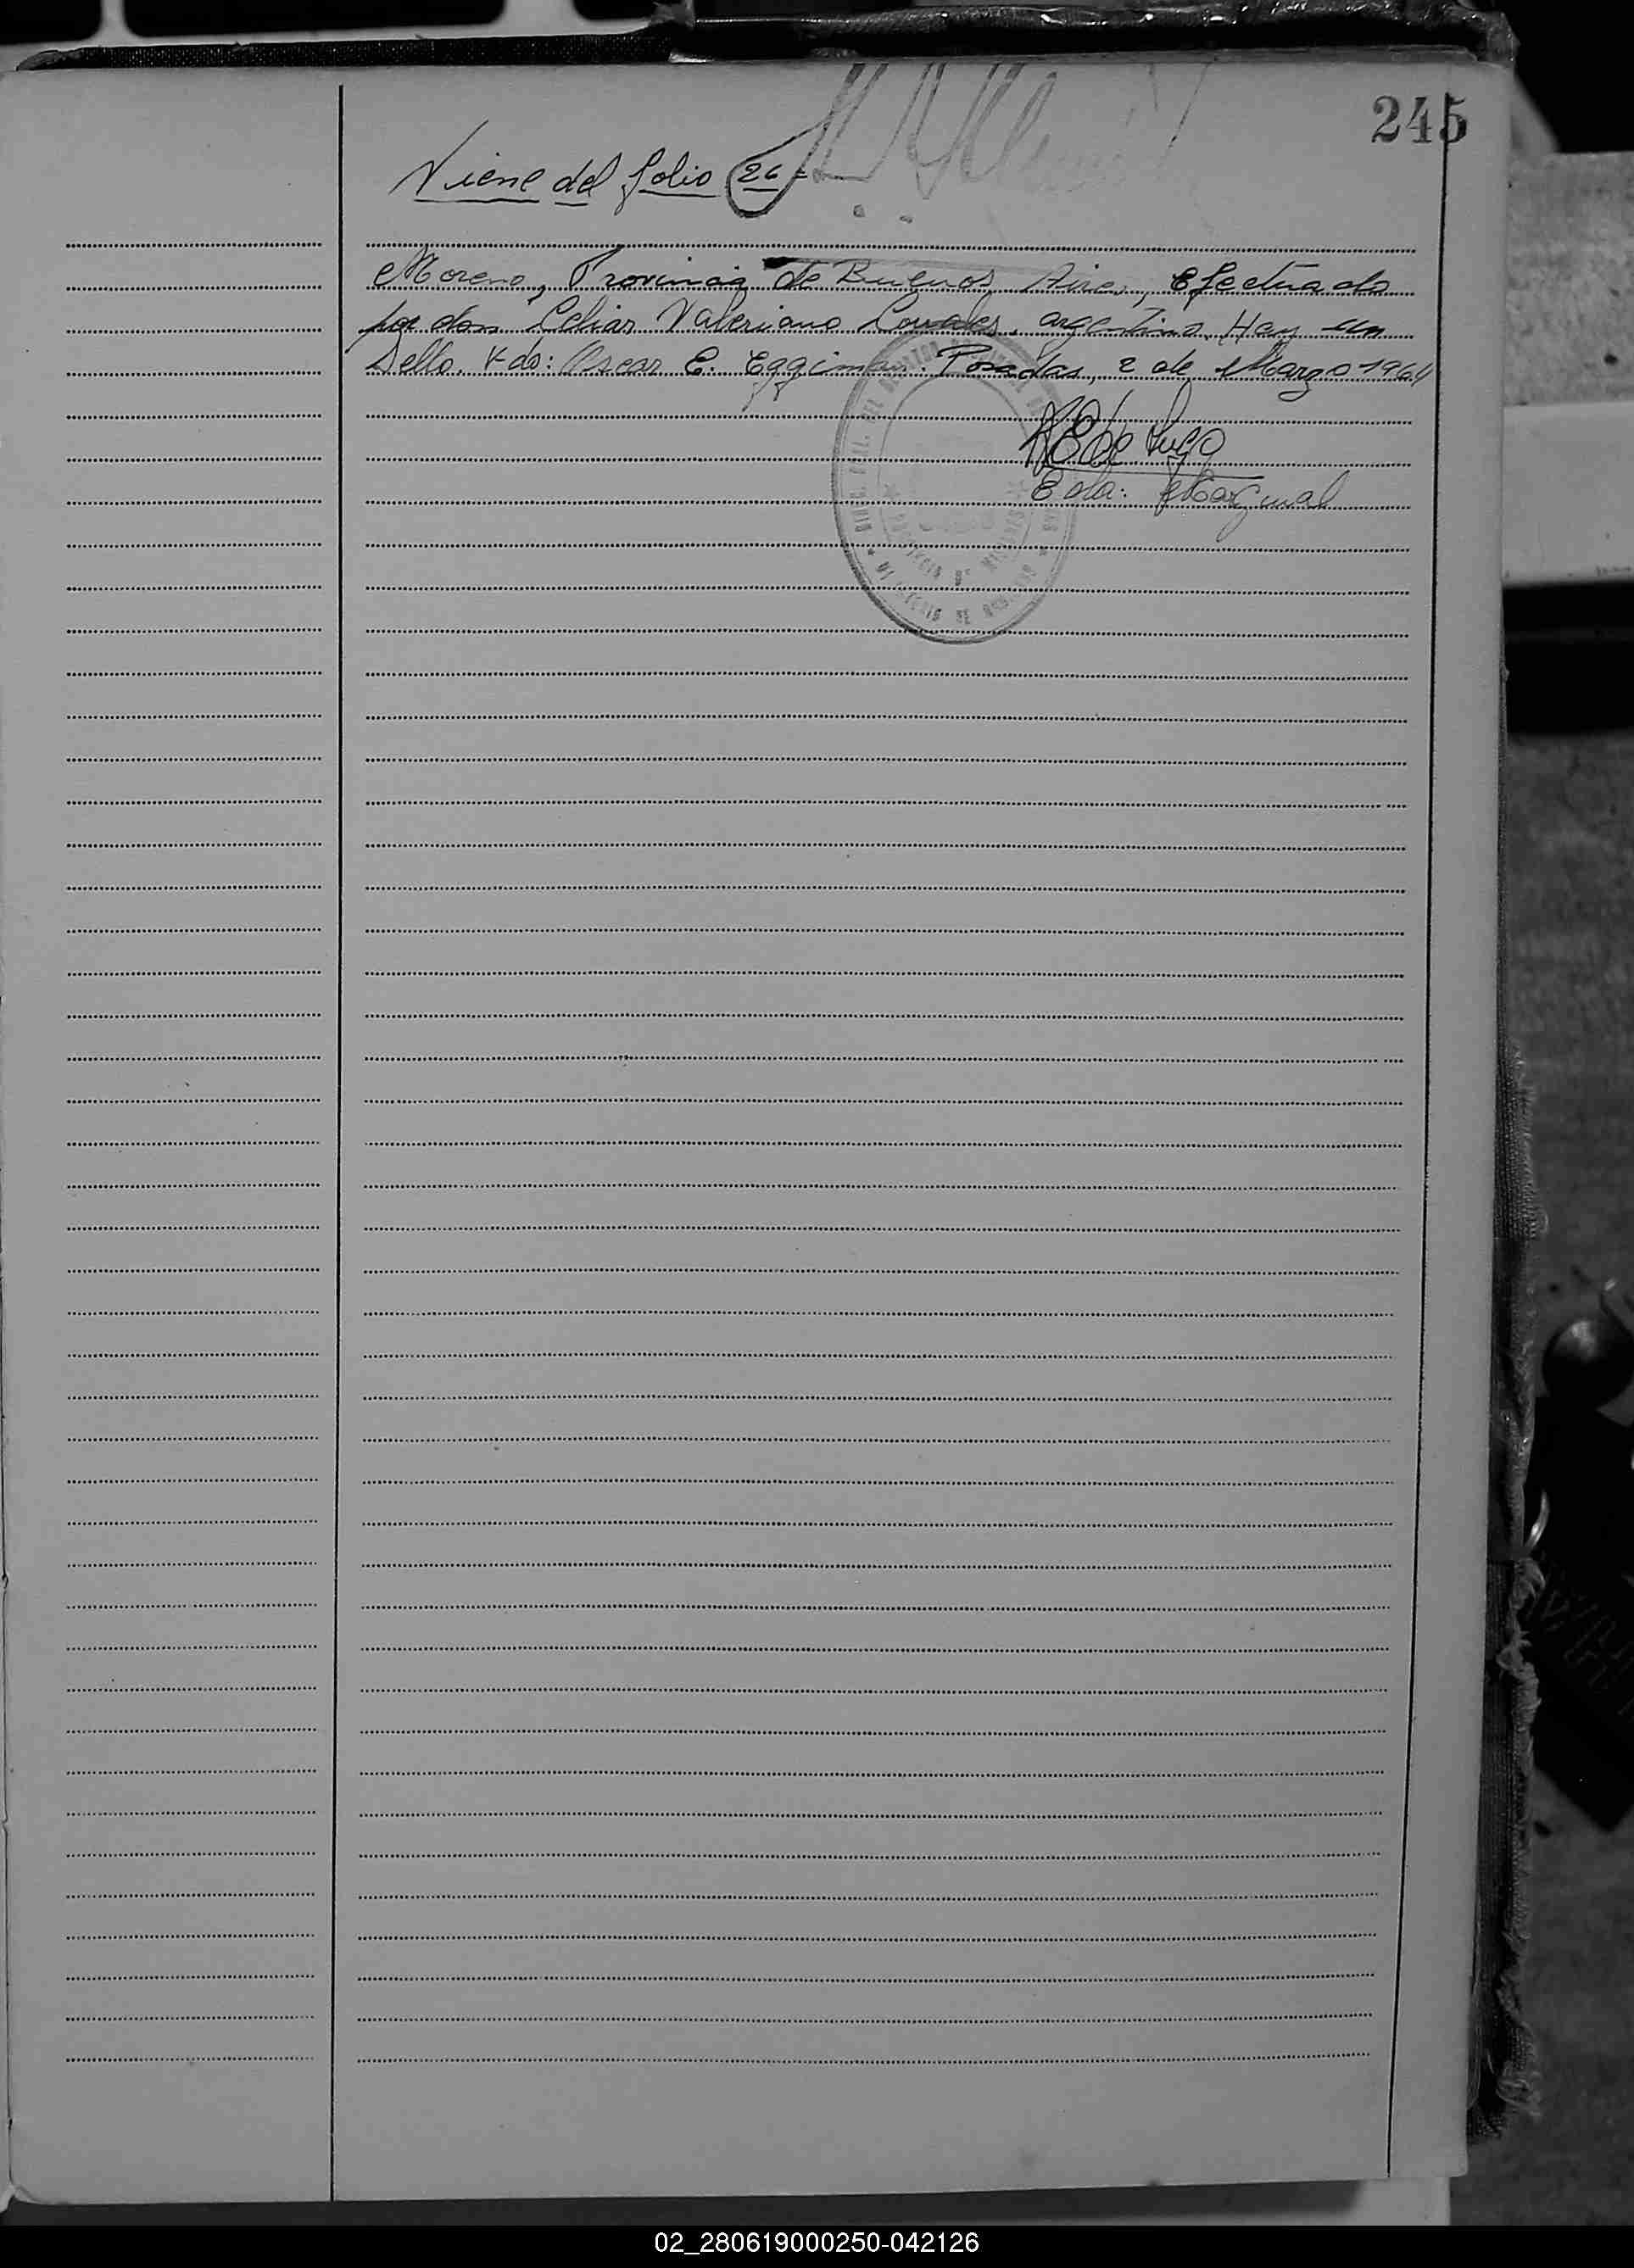 245
Viene del folio 26
Moreno, Provincia de Buenos Aires, Efectuado
por don Celiar Valeriano argentino. Hay un
Sello. Fdo: Oscar E. Eggiman. Posadas, 2 de Marzo 1964
de Lugo
Marginal
02_280619000250-042126